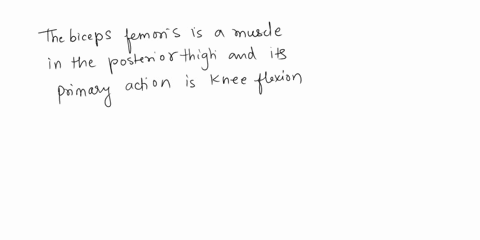 The biceps femoris is a muscle
in the posterior thigh and its
primary action is knee flexion